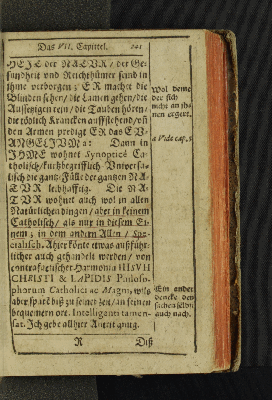 Das VII. Capittel. 241
HEIT der NATUR / der Ge-
sundheit vnd Reichthümer seind in
ihme verborgen; ER macht die
Blinden sehen / die Lamen gehen / die
Aussetzigen rein / die Tauben hören /
die tödlich Krancken auffstehend / vñ
den Armen predigt ER das EV-
ANGELIVM a: Dann in
IHME wohnet Synopticè Ca-
tholisch / kurtzbegrifflich Vniversa-
lisch die gantz Fülle der gantzen NA-
TVR leibhafftig. Die NA-
TVR wohnet auch wol in allen
Natürlichen dingen / aber in keinem
Catholisch / als nur in diesem Ei-
nem; in dem andern Allen / Spe-
cialisch. Alhier könte etwas außführ-
licher auch gehandelt werden / von
contrafactischer Harmonia IHSVH
CHRISTI & LAPIDIS Philoso-
phorum Catholici ac Magni, wils
aber sparē biß zu seiner zeit / an seinen
bequemern ort. Intelligenti tamen-
sat. Ich gebe allhier Anleit gnug.
R Diß
Wol deme
der sich
nicht an ihm
nen ergert.
a Vide cap. 5
Ein ander
dencke den
sachen selbst
auch nach.